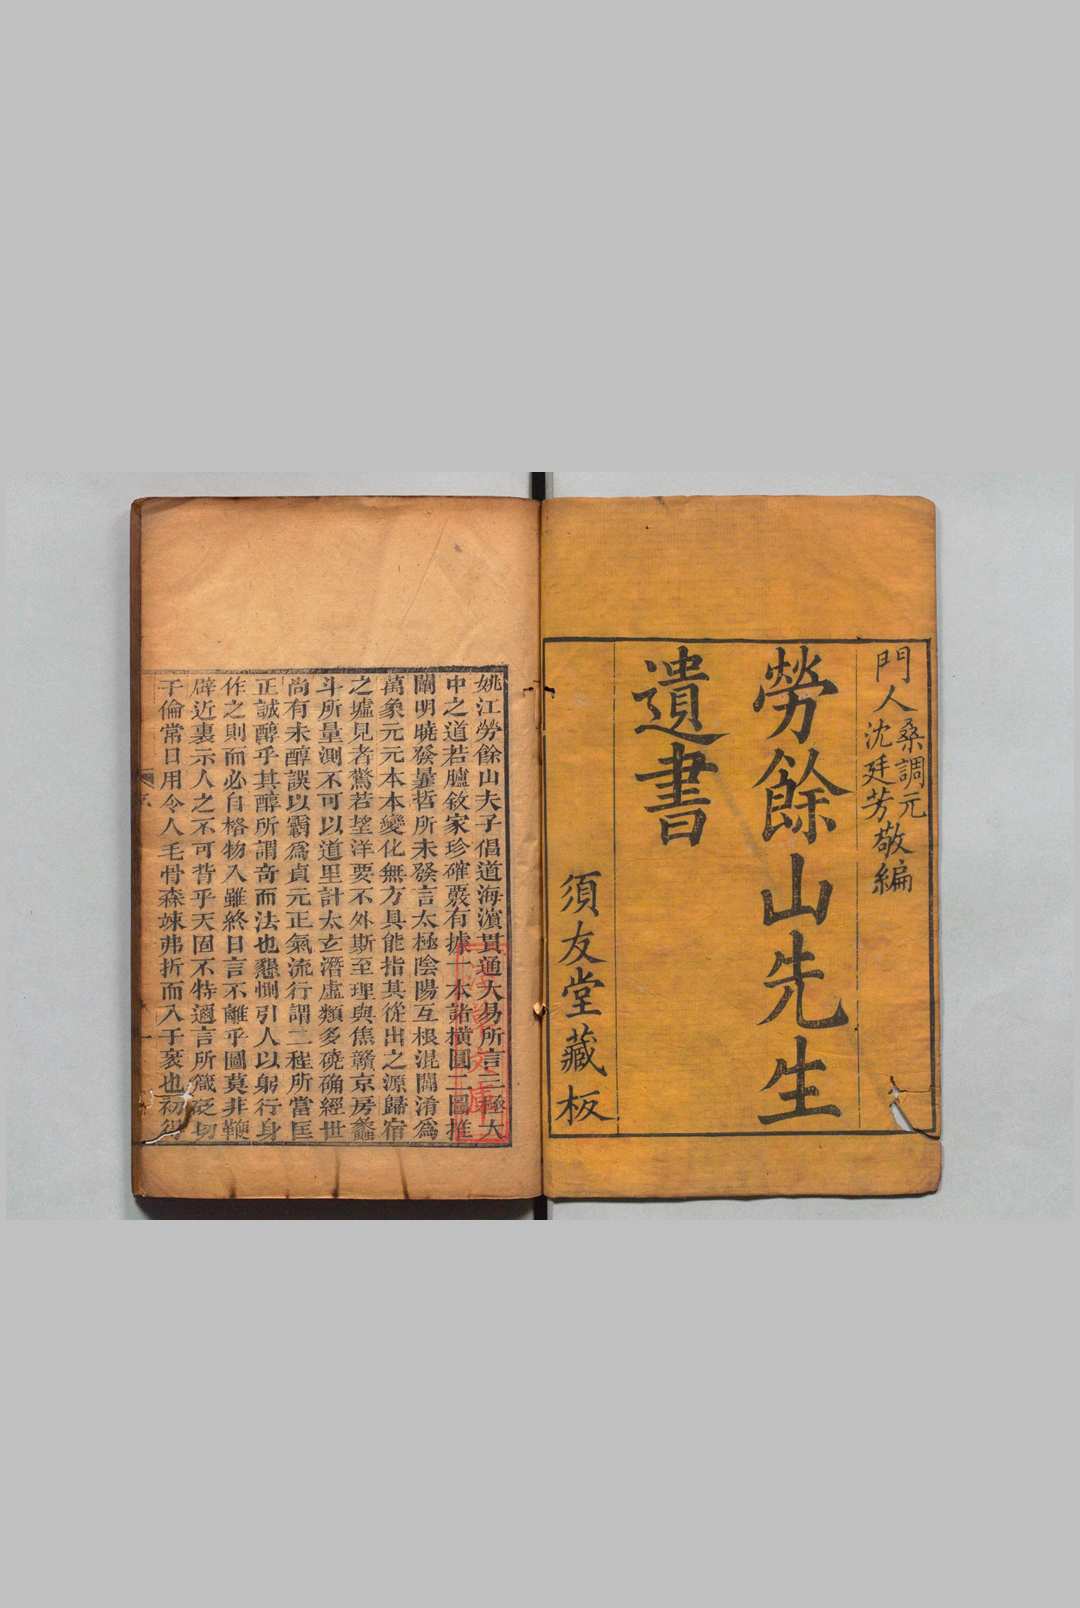 門人桑調元
沈廷芳敬編
勞餘山先生
遺書
須友堂藏板
姚江勞餘山夫子倡道海濵貫通大易所言三極大
中之道若臚敘家珍確覈有據一本諸橫圓二圖推
闡明曉發曩哲所未發言太極陰陽互根混闢淆為
萬象元元本本變化無方具能指其從出之源歸宿
之墟見者驚若望洋要不外斯至理與焦贛京房蠡
斗所量測不可以道里計太玄潛虛類多磽确經世
尚有未醇誤以霸為貞元正氣流行謂二程所當匡
正誠醇乎其醇所謂奇而法也懇惻引人以躬行身
作之則而必自格物入雖終日言不離乎圖莫非鞭
辟近裏示人之不可背乎天固不特適言所箴砭切
子倫常日用令人毛骨森竦弗折而入于衺也初得
序
文庫